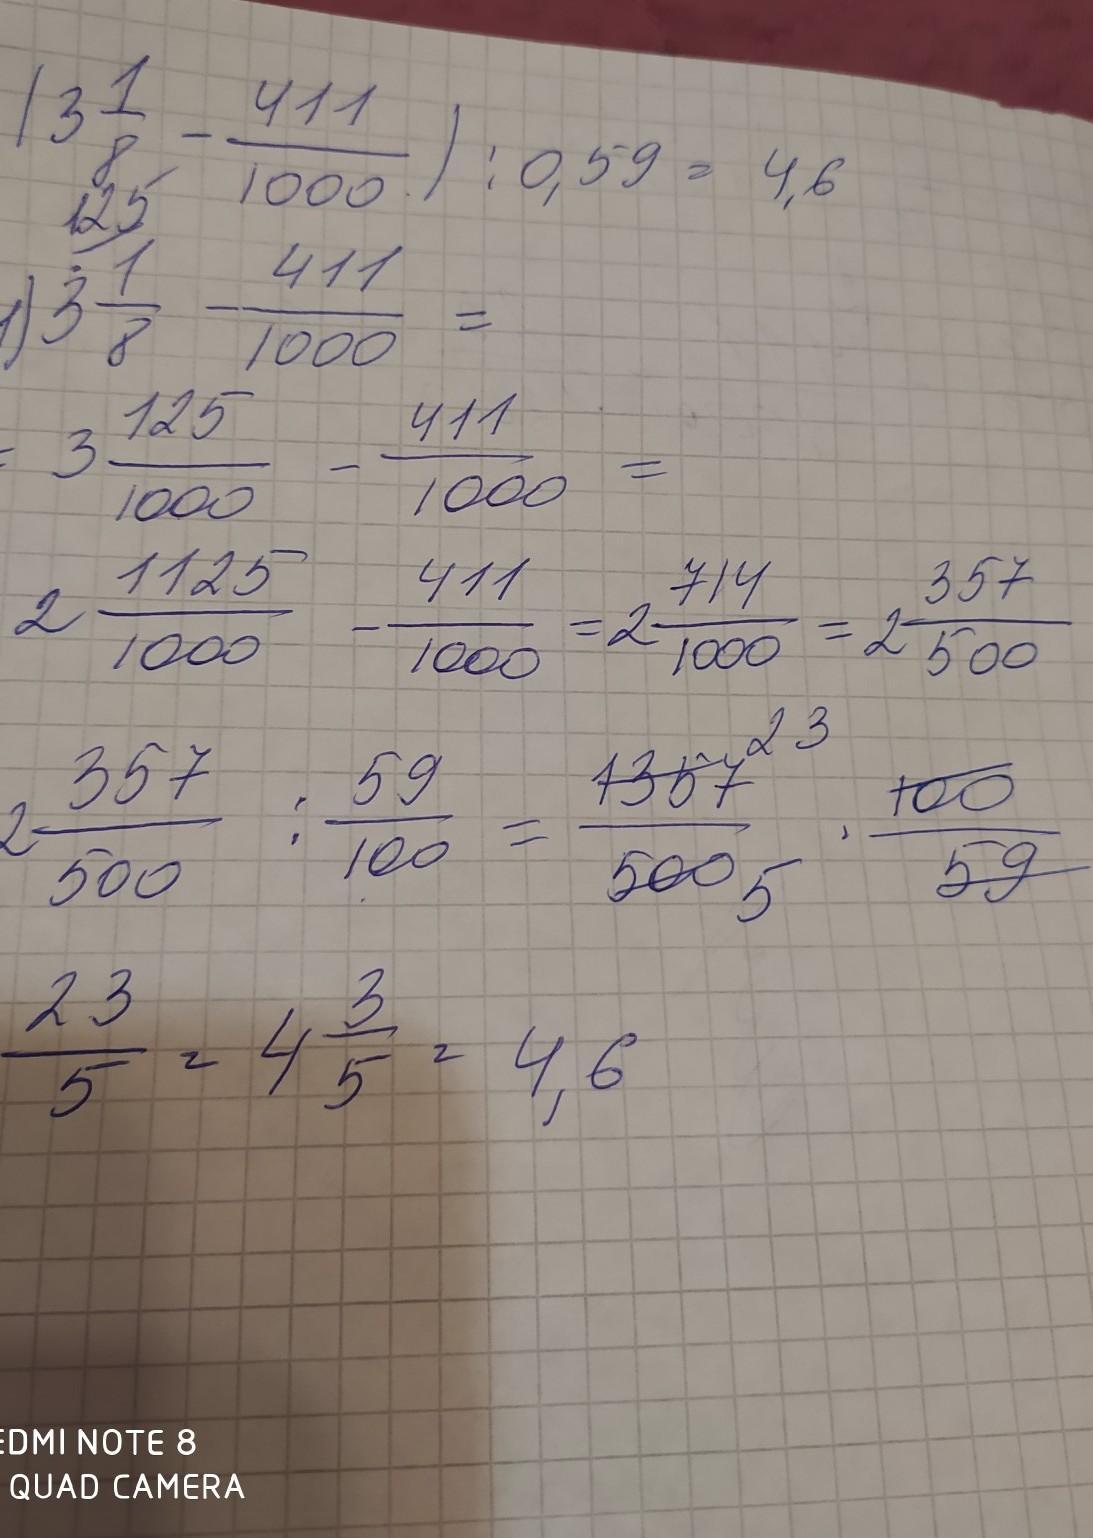 (3 1/8 - 411/1000) : 0,59 = 4,6
125
1) 3 1/8 - 411/1000 =
= 3 125/1000 - 411/1000 =
2 1125/1000 - 411/1000 = 2 714/1000 = 2 357/500
2 357/500 : 59/100 = 1357/500 · 100/59
23
5
23/5 = 4 3/5 = 4,6
EDMI NOTE 8
QUAD CAMERA